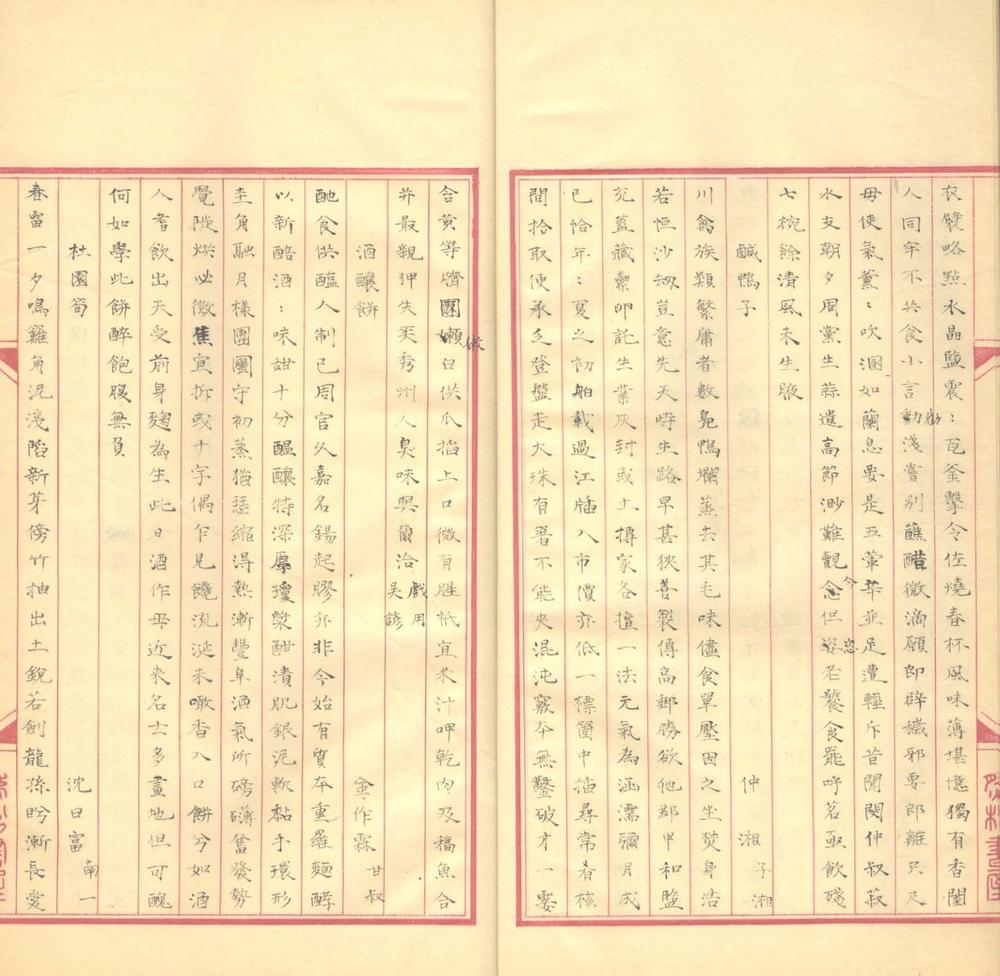 衣劈略點水晶鹽震〻瓦釜擊令佐燒春杯風味薄堪憶獨有香閨
人同牢不共食小言動淺嘗别蘸醋微滴願郎辟穢邪要郎離只尺
勸
毋使氣薰〻吹溷如蘭息要是五葷菜並足遭輕斥昔聞閔仲叔菽
水支朝夕周黨生蒜遺高節渺難觀念但姿若饕食罷呼茗亟飲殘
今
恣
七椀餘清風未生腋
鹹鴨子
仲湘子湘
川禽族類繁庸者數鳧鴨爛蒸去其毛味儘食單壓因之坐焚身浩
若恒沙刼豈意先天時生路早甚狹善製傳高郵勝欲他郡甲和鹽
充蓋藏累卵託生業灰封或土摶家各擅一法元氣為涵濡彌月成
已恰年〻夏之初舶載過江牐入市價亦低一標箇中插尋常肴核
間拾取便承乏登盤走大珠有箸不能夾混沌竅本無鑿破才一霎
含黄等臍團嫩白供爪掐上口微有腥祇宜米汁呷乾肉及稿魚合
做
并最親狎失笑秀州人臭味與爾洽
戲用
吳諺
酒釀餅
金作霖甘叔
酏食供醢人制已周官久嘉名錫起膠亦非今始有質本重羅麵酵
以新醅酒〻味甜十分醞釀特深厚瓊漿酣漬肌銀泥軟黏手環形
圭角融月樣團圞守初蒸猶瑟縮得熱漸豐阜酒氣所磅礴奮發勢
覺陡烘必微焦宜拆或十字偶乍見饞流涎未噉香入口餅兮如酒
人耆飲出天受前身麴為生此日酒作母近來名士多畫地但可醜
何如學此餅醉飽腹無負
杜園筍
沈日富南一
春雷一夕鳴籬角泥淺陷新芽傍竹抽出土銳若劍龍孫盻漸長愛